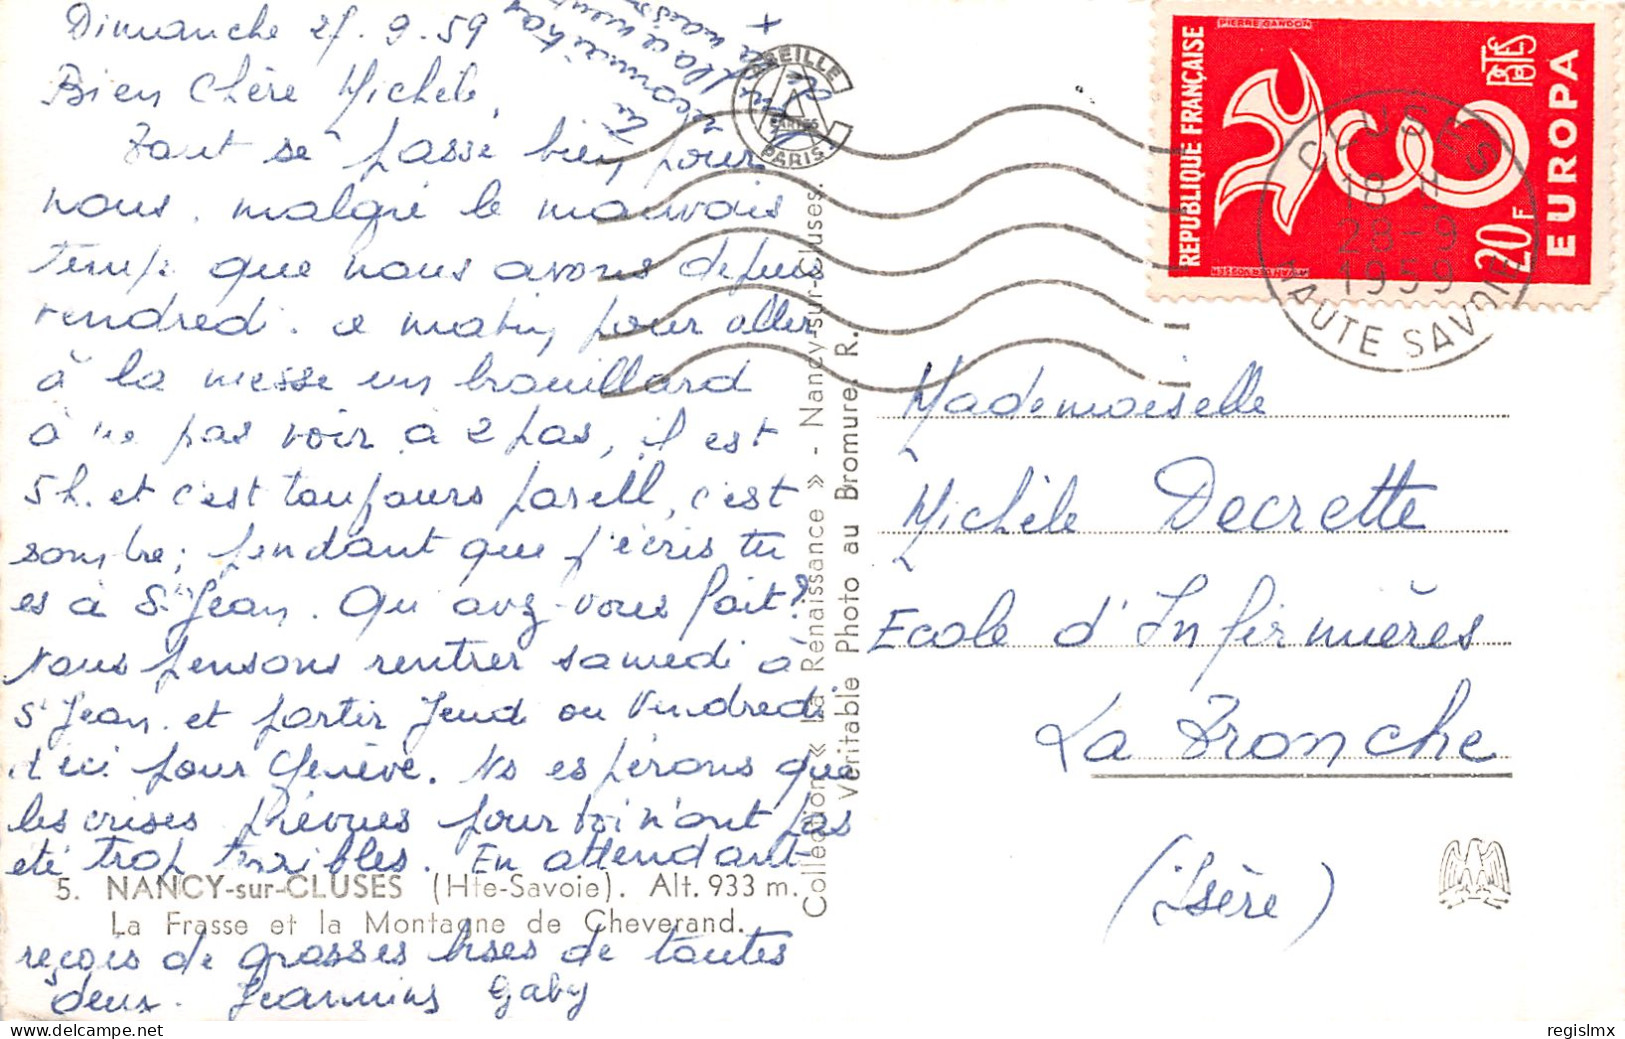 Dimanche 27. 9. 59
Bien Chère Michèle,
Tout se passe bien pour
nous. malgré le mauvais
temps que nous avons depuis
vendredi. ce matin pour aller
à la messe un brouillard
à ne pas voir à 2 pas, il est
5h. et c'est toujours pareil, c'est
sombre; pendant que j'écris tu
es à St Jean. Qu'avez-vous fait?
nous pensons rentrer samedi à
St Jean. et partir Jeudi ou Vendredi
d'ici pour Genève. Ns espérons que
les crises prévues pour toi n'ont pas
été trop terribles. En attendant
5. NANCY-sur-CLUSES (Hte-Savoie). Alt. 933 m.
La Frasse et la Montagne de Cheverand.
reçois de grosses bises de toutes
deux. Jeannine Gaby
tu
reconnaîtras
ABEILLE
CARTES
PARIS
Collection « La Renaissance » - Nancy-sur-Cluses.
Véritable Photo au Bromure. R.
PIERRE GANDON
REPUBLIQUE FRANÇAISE
POSTES
20F
EUROPA
CLUSES
18 H
28-9
1959
HAUTE SAVOIE
Mademoiselle
Michèle Decrette
Ecole d'Infirmières
La Tronche
(Isère)
regislmx